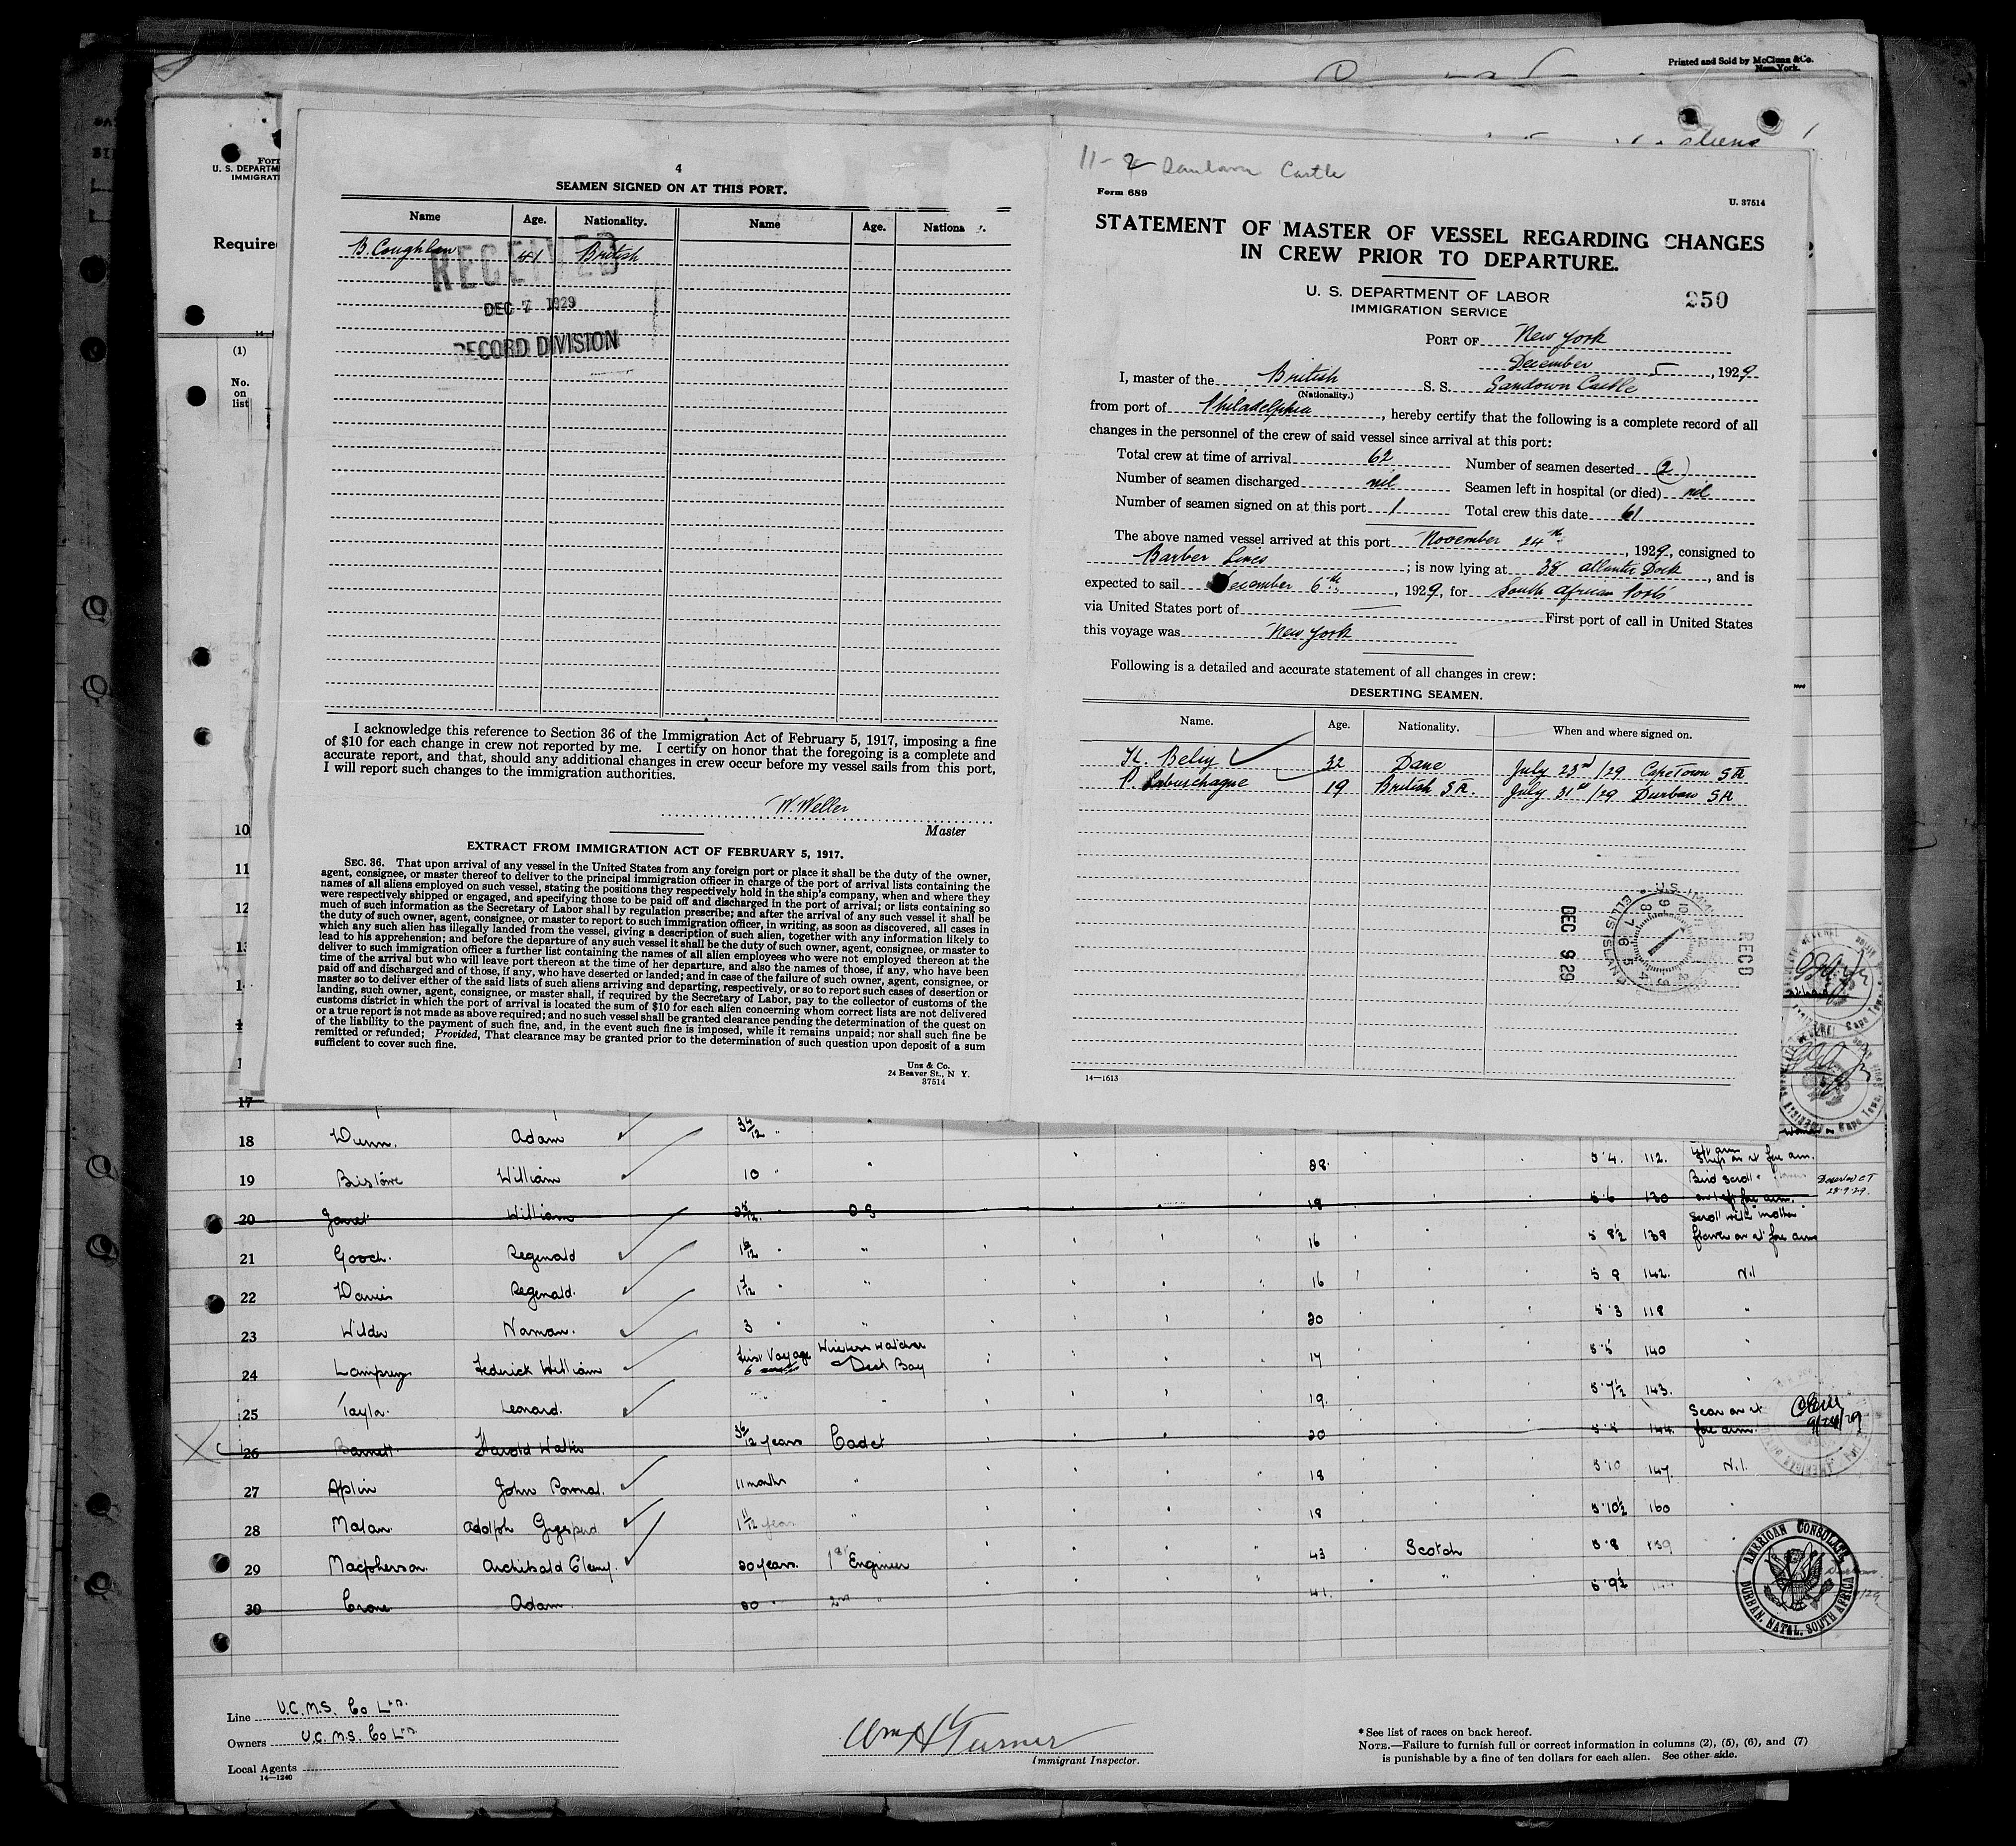 Printed and Sold by McClunn & Co.
New York.
aliens
Form
U. S. DEPARTM
IMMIGRAT
Require
14
(1)
No.
on
list
4
SEAMEN SIGNED ON AT THIS PORT.
Name Age. Nationality. Name Age. Nationa y.
B. Coughlan 41 British
RECEIVED
DEC 7 1929
RECORD DIVISION
I acknowledge this reference to Section 36 of the Immigration Act of February 5, 1917, imposing a fine
of $10 for each change in crew not reported by me. I certify on honor that the foregoing is a complete and
accurate report, and that, should any additional changes in crew occur before my vessel sails from this port,
I will report such changes to the immigration authorities.
W. Weller
Master
EXTRACT FROM IMMIGRATION ACT OF FEBRUARY 5, 1917.
SEC. 36. That upon arrival of any vessel in the United States from any foreign port or place it shall be the duty of the owner,
agent, consignee, or master thereof to deliver to the principal immigration officer in charge of the port of arrival lists containing the
names of all aliens employed on such vessel, stating the positions they respectively hold in the ship's company, when and where they
were respectively shipped or engaged, and specifying those to be paid off and discharged in the port of arrival; or lists containing so
much of such information as the Secretary of Labor shall by regulation prescribe; and after the arrival of any such vessel it shall be
the duty of such owner, agent, consignee, or master to report to such immigration officer, in writing, as soon as discovered, all cases in
which any such alien has illegally landed from the vessel, giving a description of such alien, together with any information likely to
lead to his apprehension; and before the departure of any such vessel it shall be the duty of such owner, agent, consignee, or master to
deliver to such immigration officer a further list containing the names of all alien employees who were not employed thereon at the
time of the arrival but who will leave port thereon at the time of her departure, and also the names of those, if any, who have been
paid off and discharged and of those, if any, who have deserted or landed; and in case of the failure of such owner, agent, consignee, or
master so to deliver either of the said lists of such aliens arriving and departing, respectively, or so to report such cases of desertion or
landing, such owner, agent, consignee, or master shall, if required by the Secretary of Labor, pay to the collector of customs of the
customs district in which the port of arrival is located the sum of $10 for each alien concerning whom correct lists are not delivered
or a true report is not made as above required; and no such vessel shall be granted clearance pending the determination of the quest on
of the liability to the payment of such fine, and, in the event such fine is imposed, while it remains unpaid; nor shall such fine be
remitted or refunded; Provided, That clearance may be granted prior to the determination of such question upon deposit of a sum
sufficient to cover such fine.
Unz & Co.
24 Beaver St., N Y.
37514
11-2 Sandown Castle
Form 689
U. 37514
STATEMENT OF MASTER OF VESSEL REGARDING CHANGES
IN CREW PRIOR TO DEPARTURE.
U. S. DEPARTMENT OF LABOR
IMMIGRATION SERVICE
250
PORT OF New York
December 5, 1929
I, master of the British S. S. Sandown Castle
(Nationality.)
from port of Philadelphia, hereby certify that the following is a complete record of all
changes in the personnel of the crew of said vessel since arrival at this port:
Total crew at time of arrival 62 Number of seamen deserted 2
Number of seamen discharged nil Seamen left in hospital (or died) nil
Number of seamen signed on at this port 1 Total crew this date 61
The above named vessel arrived at this port November 24th, 1929, consigned to
Barber Lines; is now lying at 38 Atlantic Dock, and is
expected to sail December 6th, 1929, for South African Ports
via United States port of — First port of call in United States
this voyage was New York
Following is a detailed and accurate statement of all changes in crew:
DESERTING SEAMEN.
Name. Age. Nationality. When and where signed on.
H. Beliy 32 Dane July 23rd/29 CapeTown SA
P. Labuschagne 19 British SA. July 31st/29 Durban SA
U.S. IMM
ELLIS ISLAND
DEC 9 29
RECD
14—1613
10
11
12
17
18 Dunn. Adam 3 4/12 " "
19 Bristowe William 10 " " 28 5'4. 112. Ship on rt fore arm.
20 Jarret William 2 5/12 OS 18 5'6 130 Bird Scroll on left fore arm. Deserted CT 28.9.29.
21 Gooch. Reginald 1 6/12 " " 16 5 8½ 138 Scroll with "mother" flower on rt fore arm
22 Davies Reginald. 1 1/12 " " 16 5 8 142. Nil
23 Wilder Naman. 3 " " 20 5'3 118 "
24 Lamprey Federick William First Voyage 6 Wireless Watcher Deck Boy 17 5'5 140 "
25 Taylor Leonard. " " 19. 5'7½ 143. "
26 Barnett Harold Walter 3 6/12 years Cadet 20 144. Scar on rt fore arm. 9/24/29
27 Aplin John 11 months " 18 5'10 147. Nil.
28 Malan. Adolph 1 11/12 year " 18 5'10½ 160 "
29 Macpherson. Archibald 20 years. 1st Engineer 43 Scotch 5'8 159
30 Crone Adam 20 " 2nd " 41. " 5'9½
AMERICAN CONSULATE
DURBAN, NATAL, SOUTH AFRICA
Line U.C.M.S. Co Ltd.
Owners U.C.M.S. Co Ltd.
Local Agents
14—1240
Wm H Turner
Immigrant Inspector.
* See list of races on back hereof.
NOTE.—Failure to furnish full or correct information in columns (2), (5), (6), and (7)
is punishable by a fine of ten dollars for each alien. See other side.